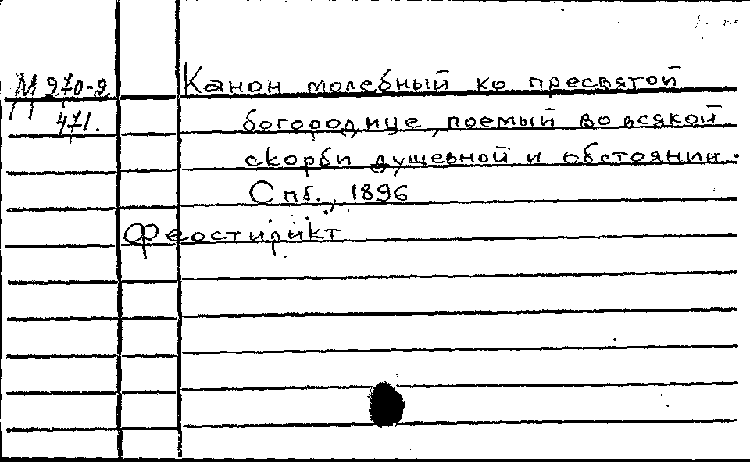 М 970-9 Канон молебный ко пресвятой
471. богородице, поемый во всякой
скорби душевной и обстоянии.
Спб., 1896
Феостирикт